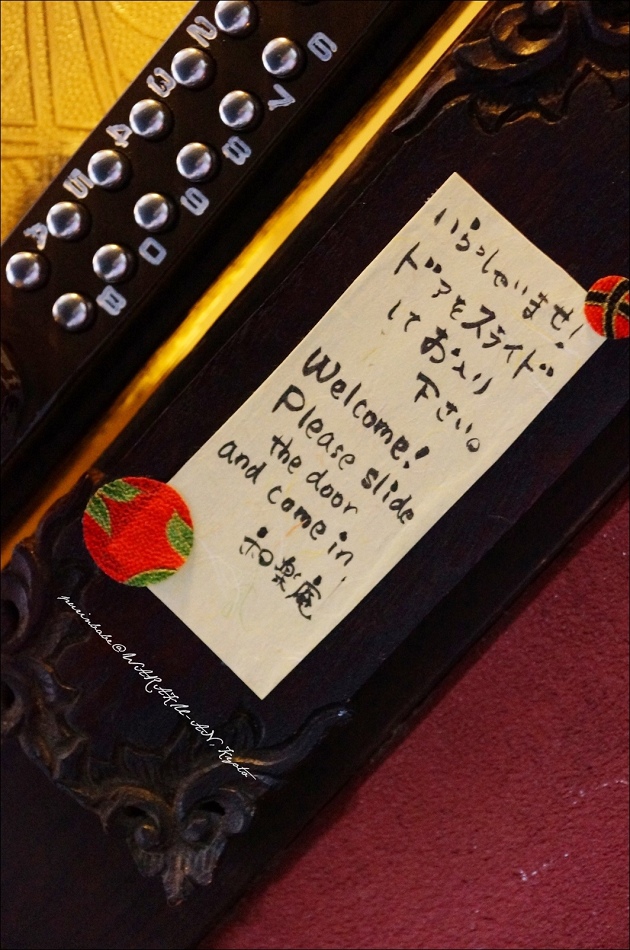 いらっしゃいませ!
ドアをスライド
して お入り
下さい。
Welcome!
Please slide
the door
and come in
和樂庵
2
3
4
5
A
6
7
8
9
0
B
purinbabe@WARAKU-AN, Kyoto